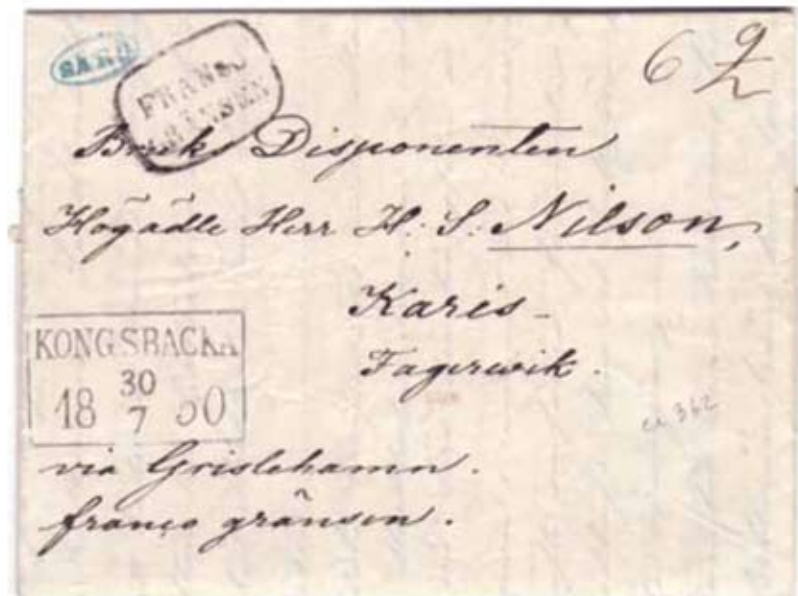 SÄRÖ
6
FRANSO
GRÄNSEN
Bruks Disponenten
Högädle Herr H. S. Nilson,
Karis-
Fagerwik.
KONGSBACKA
18 30/7 50
via Grislehamn.
franco gränsen.